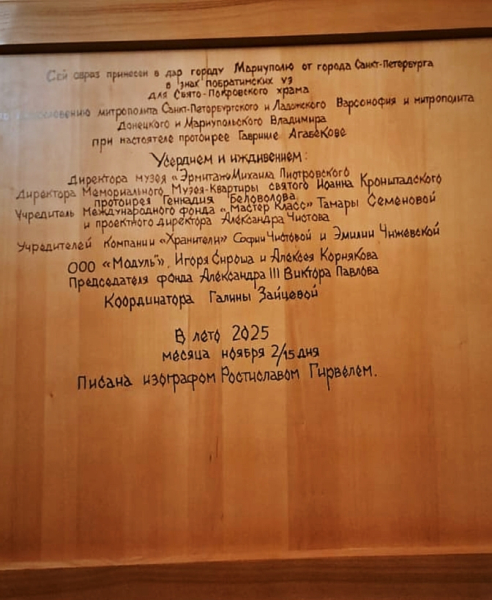 Сей образ принесен в дар городу Мариуполю от города Санкт-Петербурга
в знак побратимских уз
для Свято-Покровского храма
митрополита Санкт-Петербургского и Ладожского Варсонофия и митрополита
Донецкого и Мариупольского Владимира
при настоятеле протоирее Гаврииле Агабекове
Усердием и иждивением:
Директора музея «Эрмитаж» Михаила Пиотровского
Директора Мемориального Музея-Квартиры святого Иоанна Кронштадского
протоирея Геннадия Беловолова
Учредитель Международного фонда «Мастер Класс» Тамары Семеновой
и проектного директора Александра Чистова
Учредителей компании «Хранители» Софии Чистовой и Эмилии Чижевской
ООО «Модуль», Игоря Сироша и Алексея Корнякова
Председателя фонда Александра III Виктора Павлова
Координатора Галины Зайцевой
В лето 2025
месяца ноября 2/15 дня
Писана изографом Ростиславом Гирвелем.